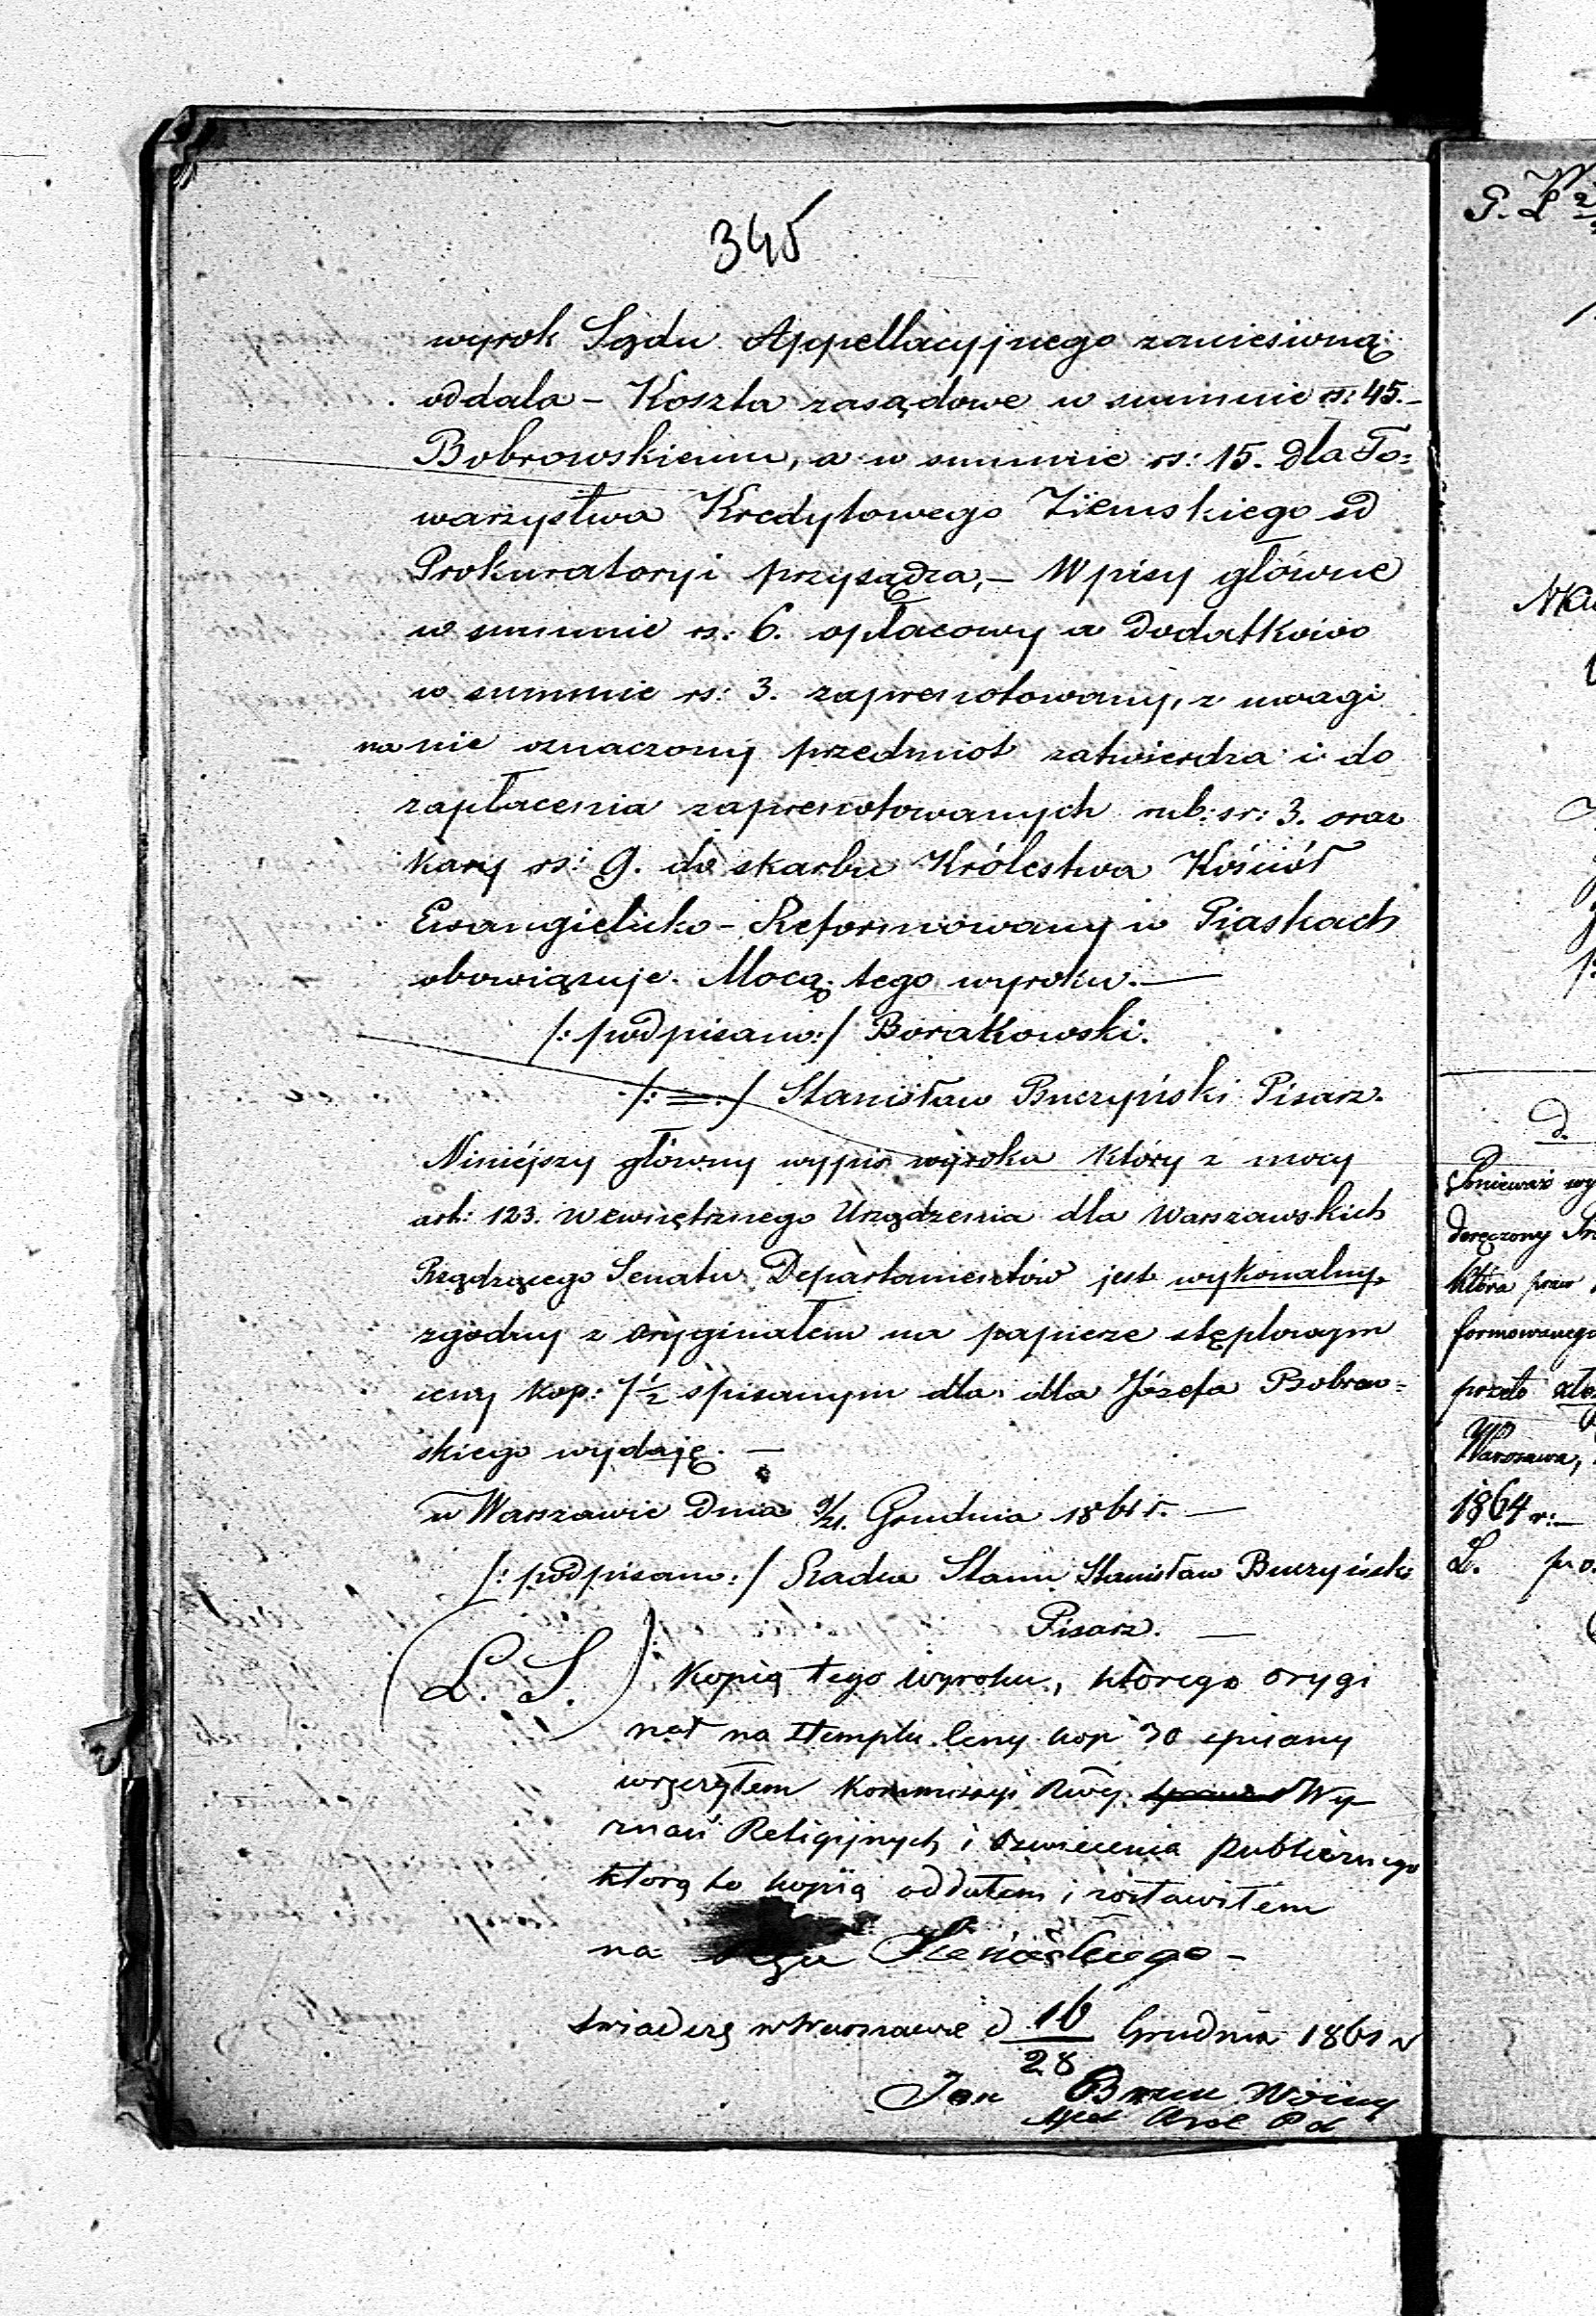 345
wyrok Sądu Appellacyjnego zaniesioną
oddala – Koszta zasądowe w summie rs: 45. –
Bobrowskiemu, a w summie rs: 15. dla To=
warzystwa Kredytowego Ziemskiego od
Prokuratoryi przysądza, – Wpisy główne
w summie rs: 6. opłacowy a dodatkowo
w summie rs: 3. zaprenotowany, z uwagi
na nie oznaczony przedmiot zatwierdza i do
zapłacenia zaprenotowanych rub: sr: 3. oraz
kary rs: 9. do skarbu Królestwa Kościół
Ewangielicko – Reformowany w Piaskach
obowiązuje. Mocą tego wyroku. —
/: podpisano :/ Borakowski.
/: = :/ Stanisław Buczyński Pisarz.
Niniéjszy główny wypis wyroku który z mocy
art: 123. Wewnętrznego Urządzenia dla Warszawskich
Rządzącego Senatu Departamentów jest wykonalny
zgodny z oryginałem na papierze stęplowym
ceny kop: 7½ spisanym dla dla Józefa Bobrow=
skiego wydaję. —
w Warszawie dnia 9/21. Grudnia 1861 r. —
/: podpisano :/ Radca Stanu Stanisław Buczyński
Pisarz. —
(L. S.) Kopią tego wyroku, którego orygi
nał na stemplu ceny kop 30 spisany
wręczyłem Kommissyi Rwéj Wy
znań Religijnych i Oświecenia Publicznego
którą to kopią oddałem i zostawiłem
na
świadczę w Warszawie d 16/28 Grudnia 1861 r
Jan Woźny
P. L.
D.
Ponieważ
doręczony
która praw
formowanego
przeto
Warszawa,
1864 r: –
L.